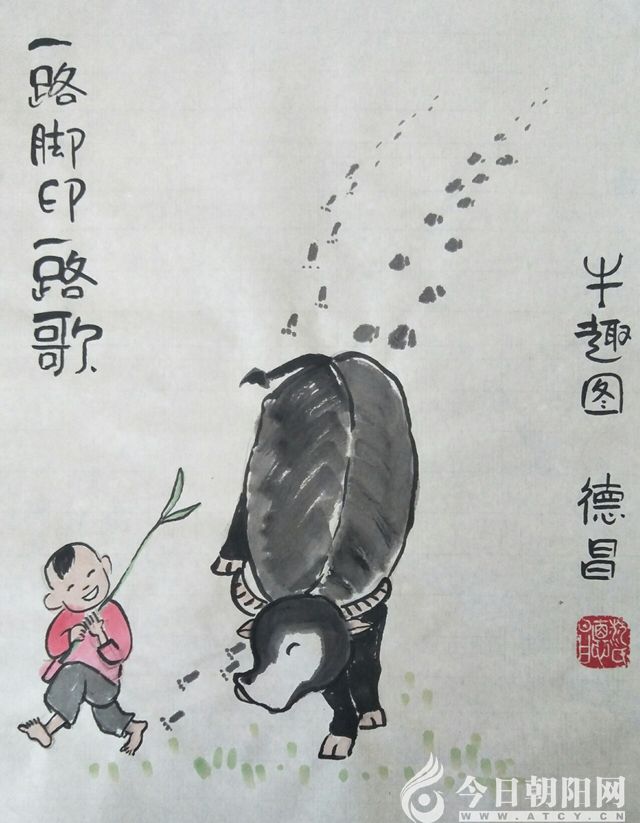 一路脚印一路歌
牛趣图 德昌
今日朝阳网
WWW.ATCY.CN